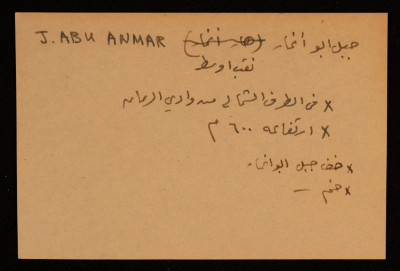 J. ABU ANMAR (دار أنمار) جبل ابو أنمار
نقب اوسط
x في الطرف الشمالي من وادي الرمان
x ارتفاعه ٦٠٠ م
x جبل ابو انمار
x